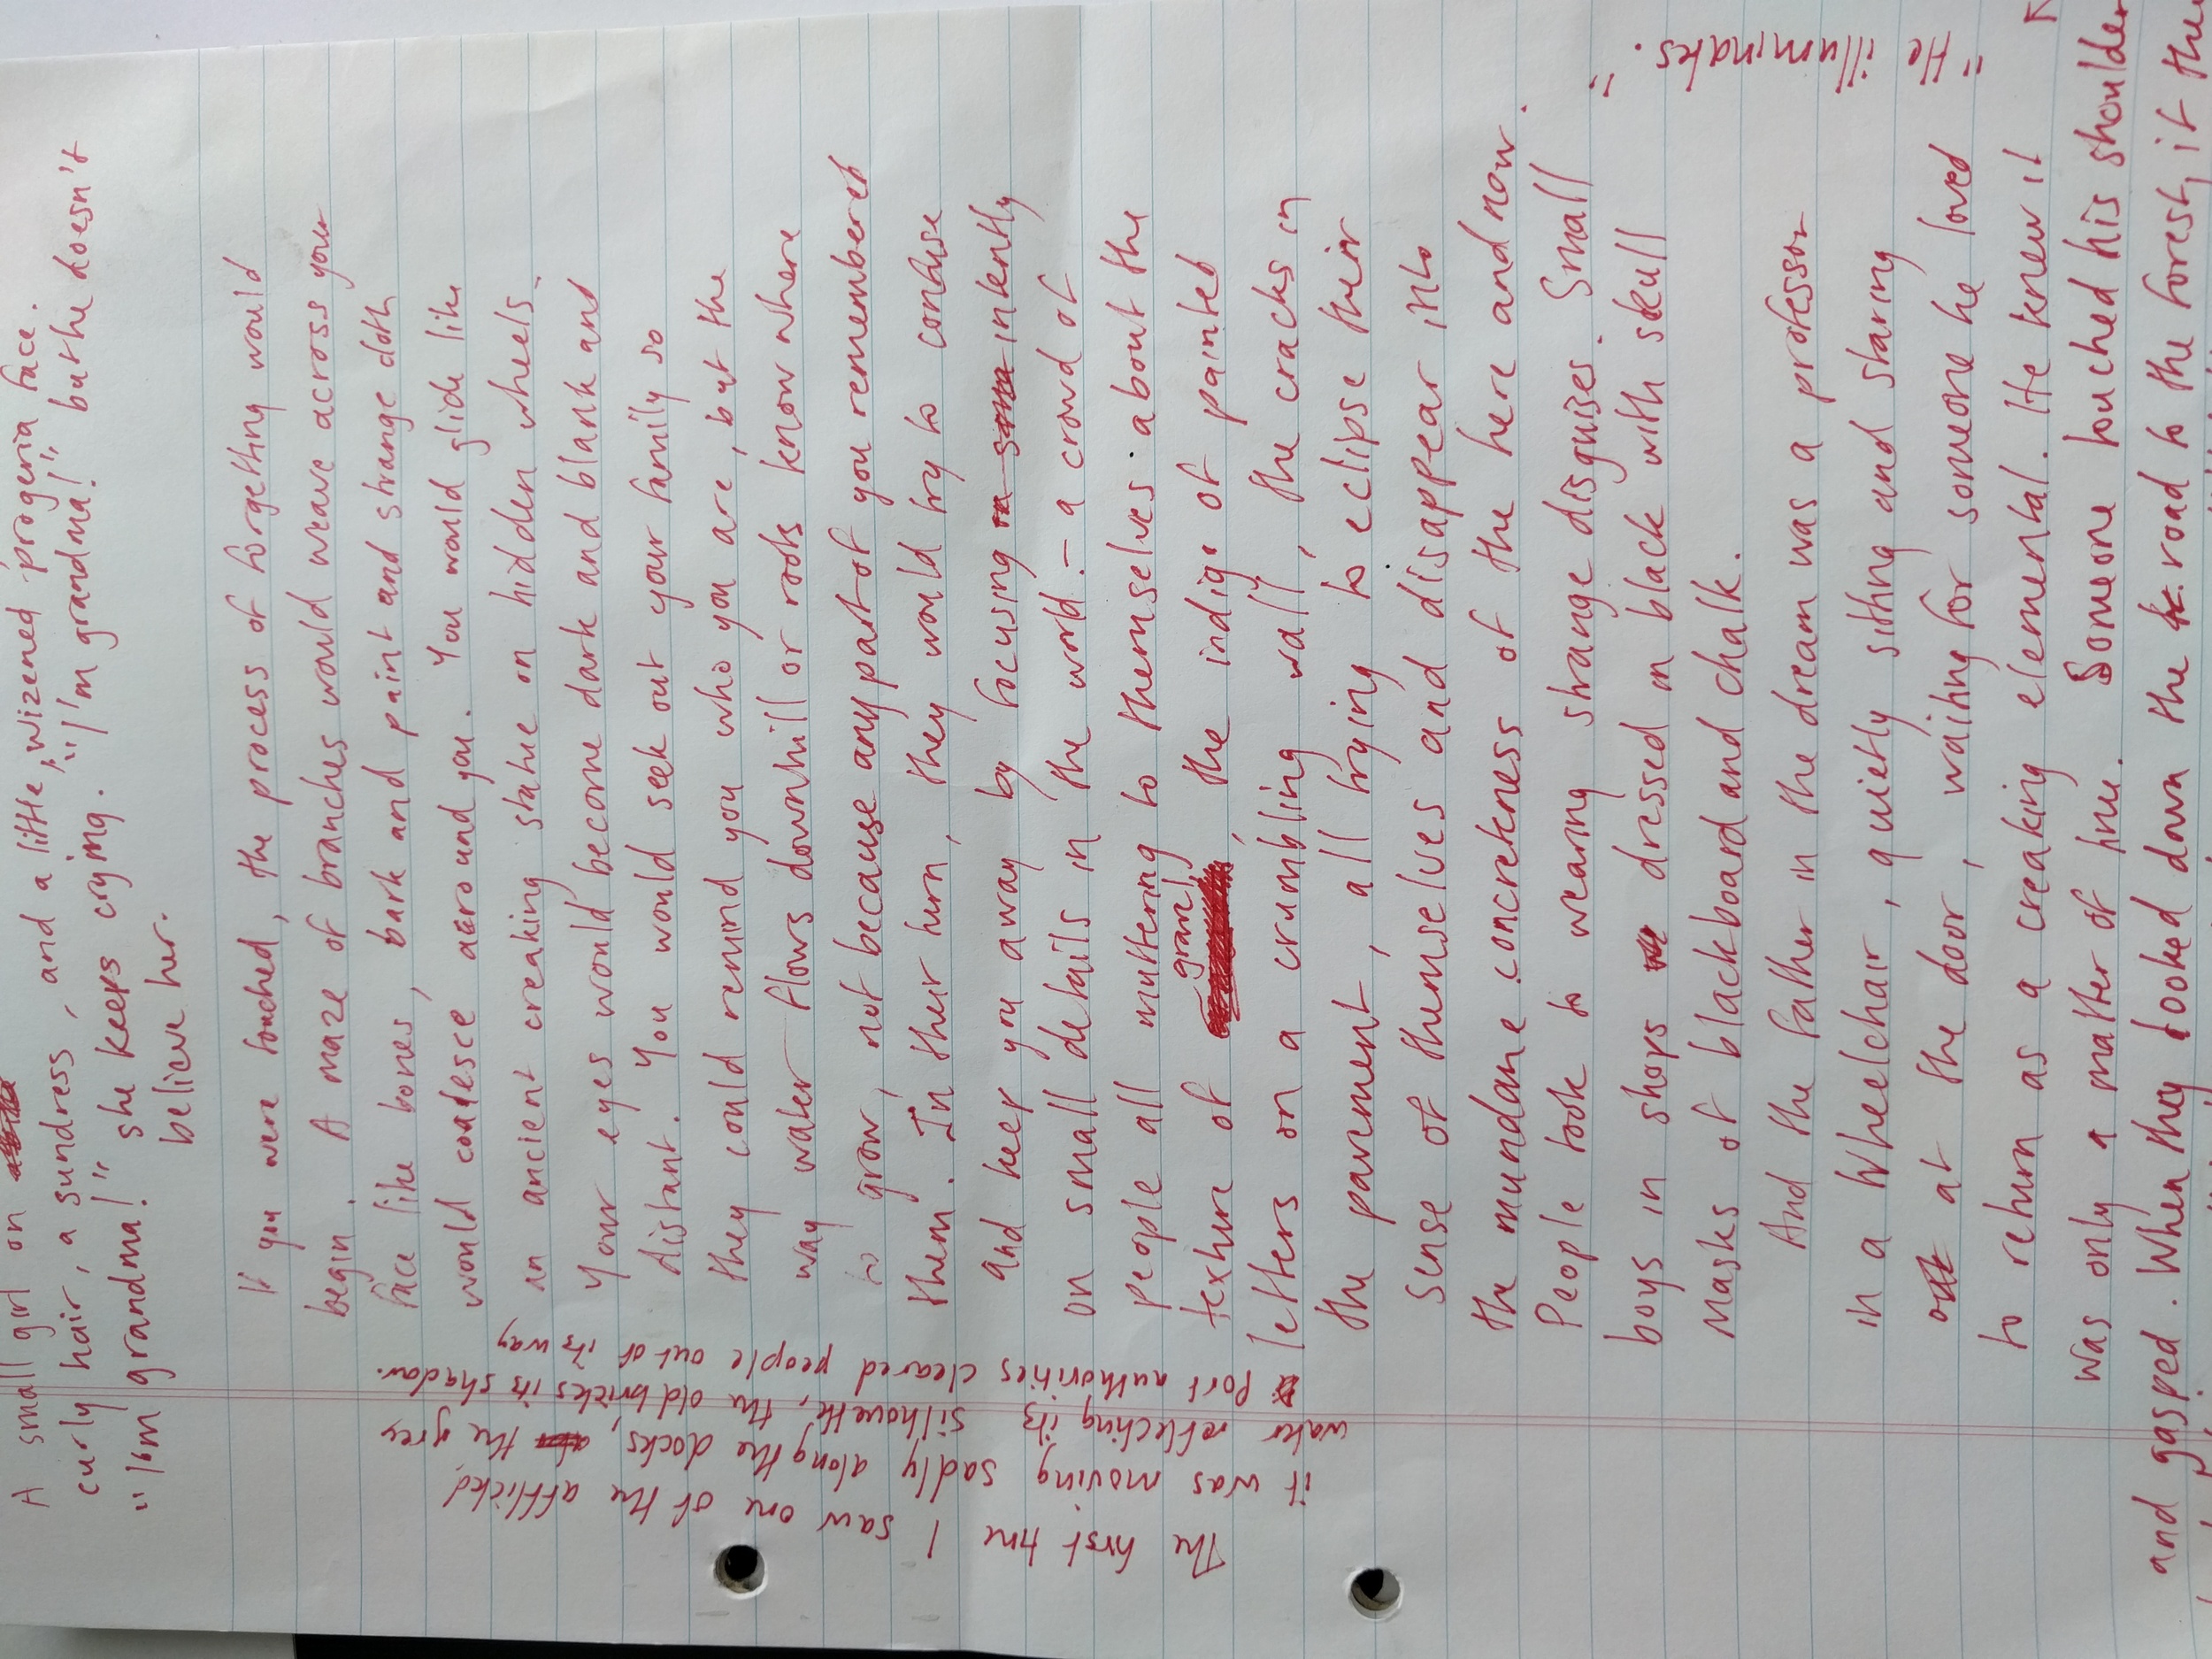 A small girl on
curly hair, a sundress, and a little, wizened progeria face.
"I'm grandma!" she keeps crying. "I'm grandma!" but he doesn't
believe her.
If you were touched, the process of forgetting would
begin. A maze of branches would weave across your
face like bones, bark and paint and strange cloth
would coalesce around you. You would glide like
an ancient creaking statue on hidden wheels.
Your eyes would become dark and blank and
distant. You would seek out your family so
they could remind you who you are, but the
way water flows downhill or roots know where
to grow, not because any part of you remembered
them. In their turn, they would try to confuse
and keep you away by focusing intently
on small details in the world - a crowd of
people all muttering to themselves about the
texture of gravel, the indigo of painted
letters on a crumbling wall, the cracks in
the pavement, all trying to eclipse their
sense of themselves and disappear into
the mundane concreteness of the here and now.
People took to wearing strange disguises. Small
boys in shops dressed in black with skull
masks of blackboard and chalk.
And the father in the dream was a professor
in a wheelchair, quietly sitting and staring
at the door, waiting for someone he loved
to return as a creaking elemental. He knew it
was only a matter of time. Someone touched his shoulder
and gasped. When they looked down the road to the forest, it
The first time I saw one of the afflicted,
it was moving sadly along the docks, the grey
water reflecting its silhouette, the old bricks its shadow.
Port authorities cleared people out of its way
"He
illuminates.
"